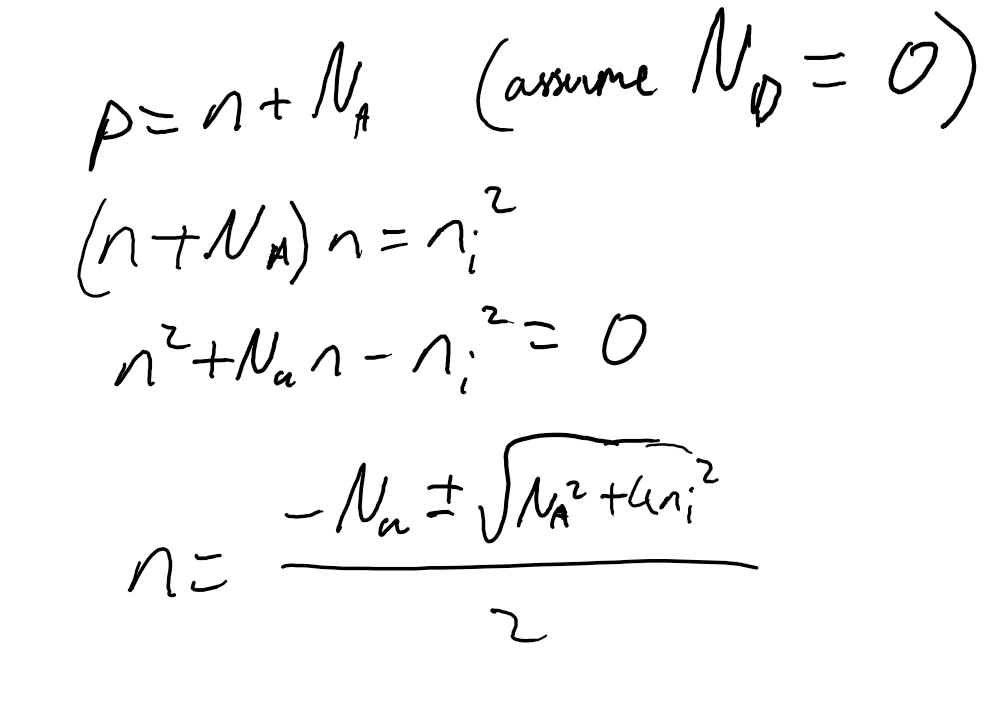 p = n + N_A (assume N_D = 0)
(n + N_A) n = n_i^2
n^2 + N_a n - n_i^2 = 0
n = \frac{-N_a ± \sqrt{N_A^2 + 4n_i^2}}{2}